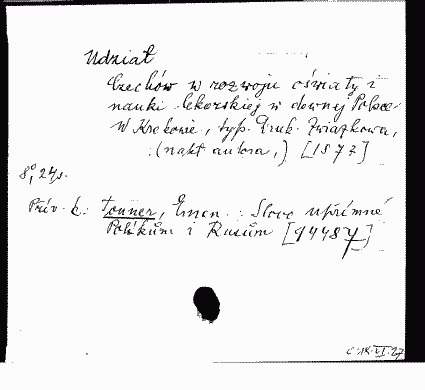 Udział
Czechów w rozwoju oświaty i
nauki lekarskiej w dawnej Polsce
W Krakowie, typ. Druk. Związkowa,
(nakł autora,) [1877]
8°, 24 s.
Přív. k: Tonner, Eman.: Slovo upřímné
Polákům i Rusům [94487]